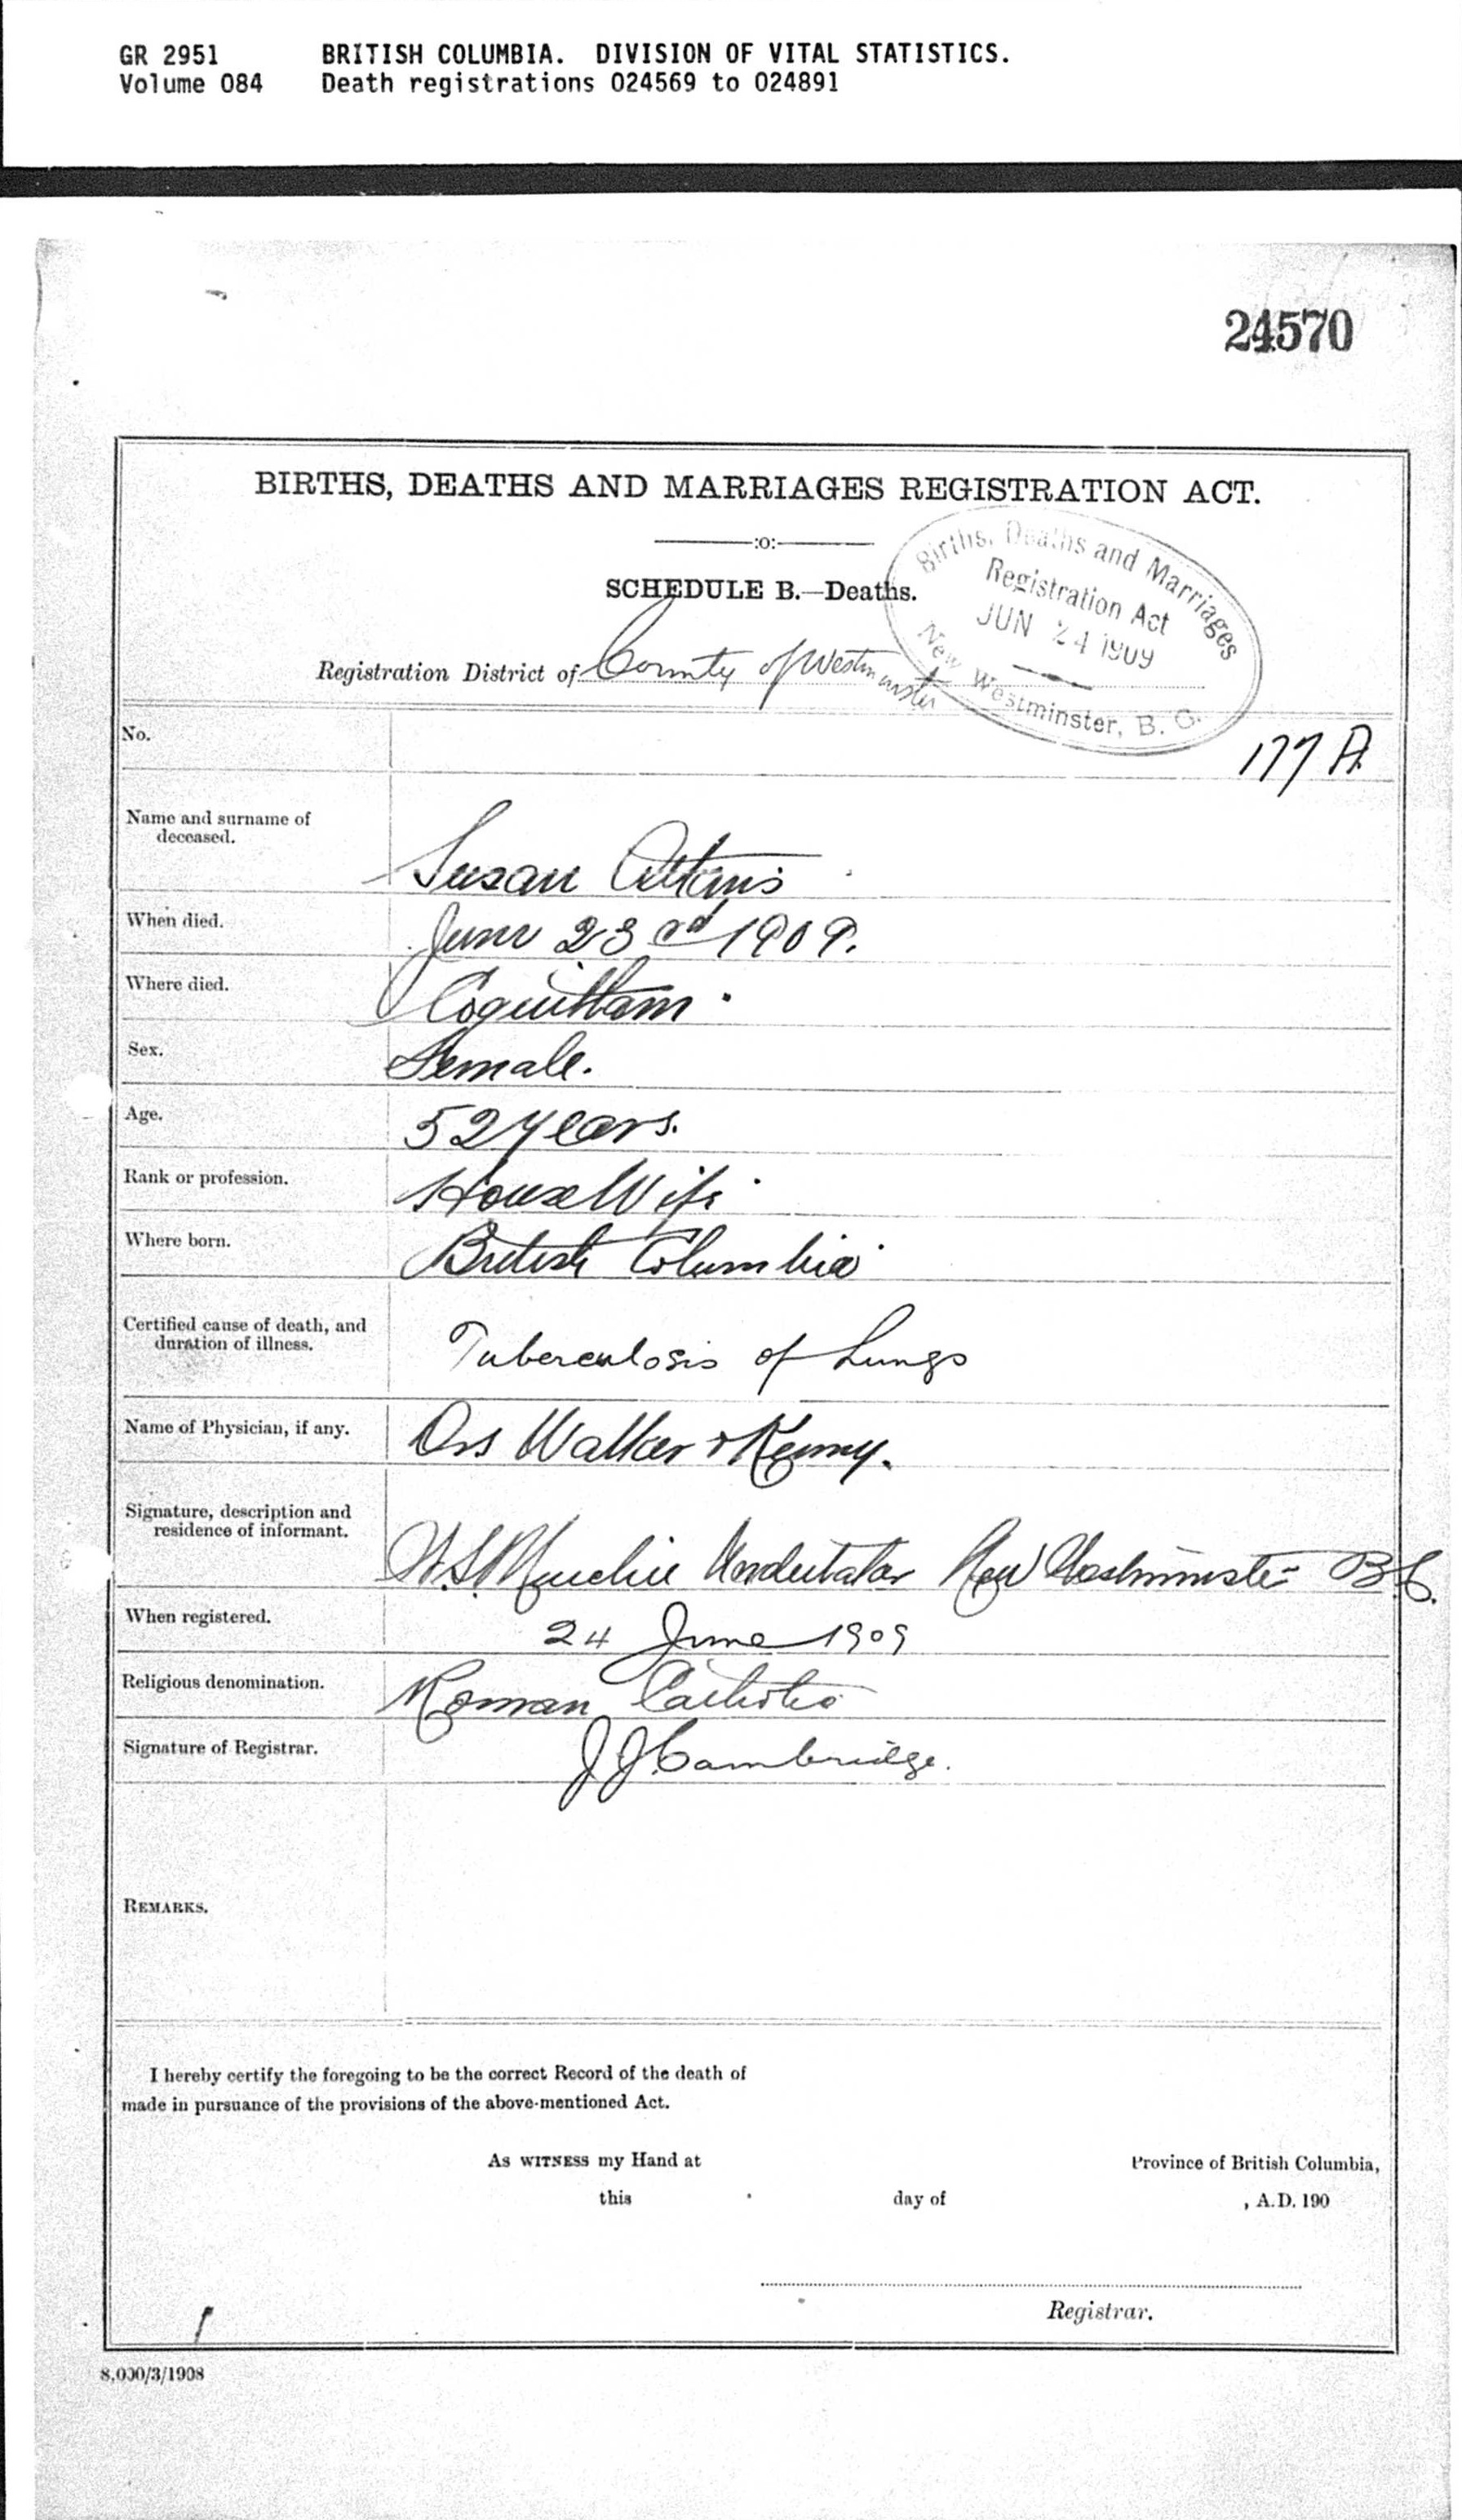 GR 2951 BRITISH COLUMBIA. DIVISION OF VITAL STATISTICS.
Volume 084 Death registrations 024569 to 024891
24570
BIRTHS, DEATHS AND MARRIAGES REGISTRATION ACT.
:o:
SCHEDULE B.—Deaths.
Births, Deaths and Marriages
Registration Act
JUN 24 1909
New Westminster, B. C.
Registration District of County of Westminster
No. 177 A
Name and surname of
deceased.
Susan Atkins
When died. June 23rd 1909.
Where died. Coquitlam.
Sex. Female.
Age. 52 years.
Rank or profession. House Wife.
Where born. British Columbia
Certified cause of death, and
duration of illness.
Tuberculosis of Lungs
Name of Physician, if any. Drs Walker + Kenny.
Signature, description and
residence of informant.
Undertaker New Westminster B.C.
When registered. 24 June 1909
Religious denomination. Roman Catholic
Signature of Registrar. J J Cambridge.
REMARKS.
I hereby certify the foregoing to be the correct Record of the death of
made in pursuance of the provisions of the above-mentioned Act.
As WITNESS my Hand at Province of British Columbia,
this day of , A.D. 190
Registrar.
8,000/3/1908